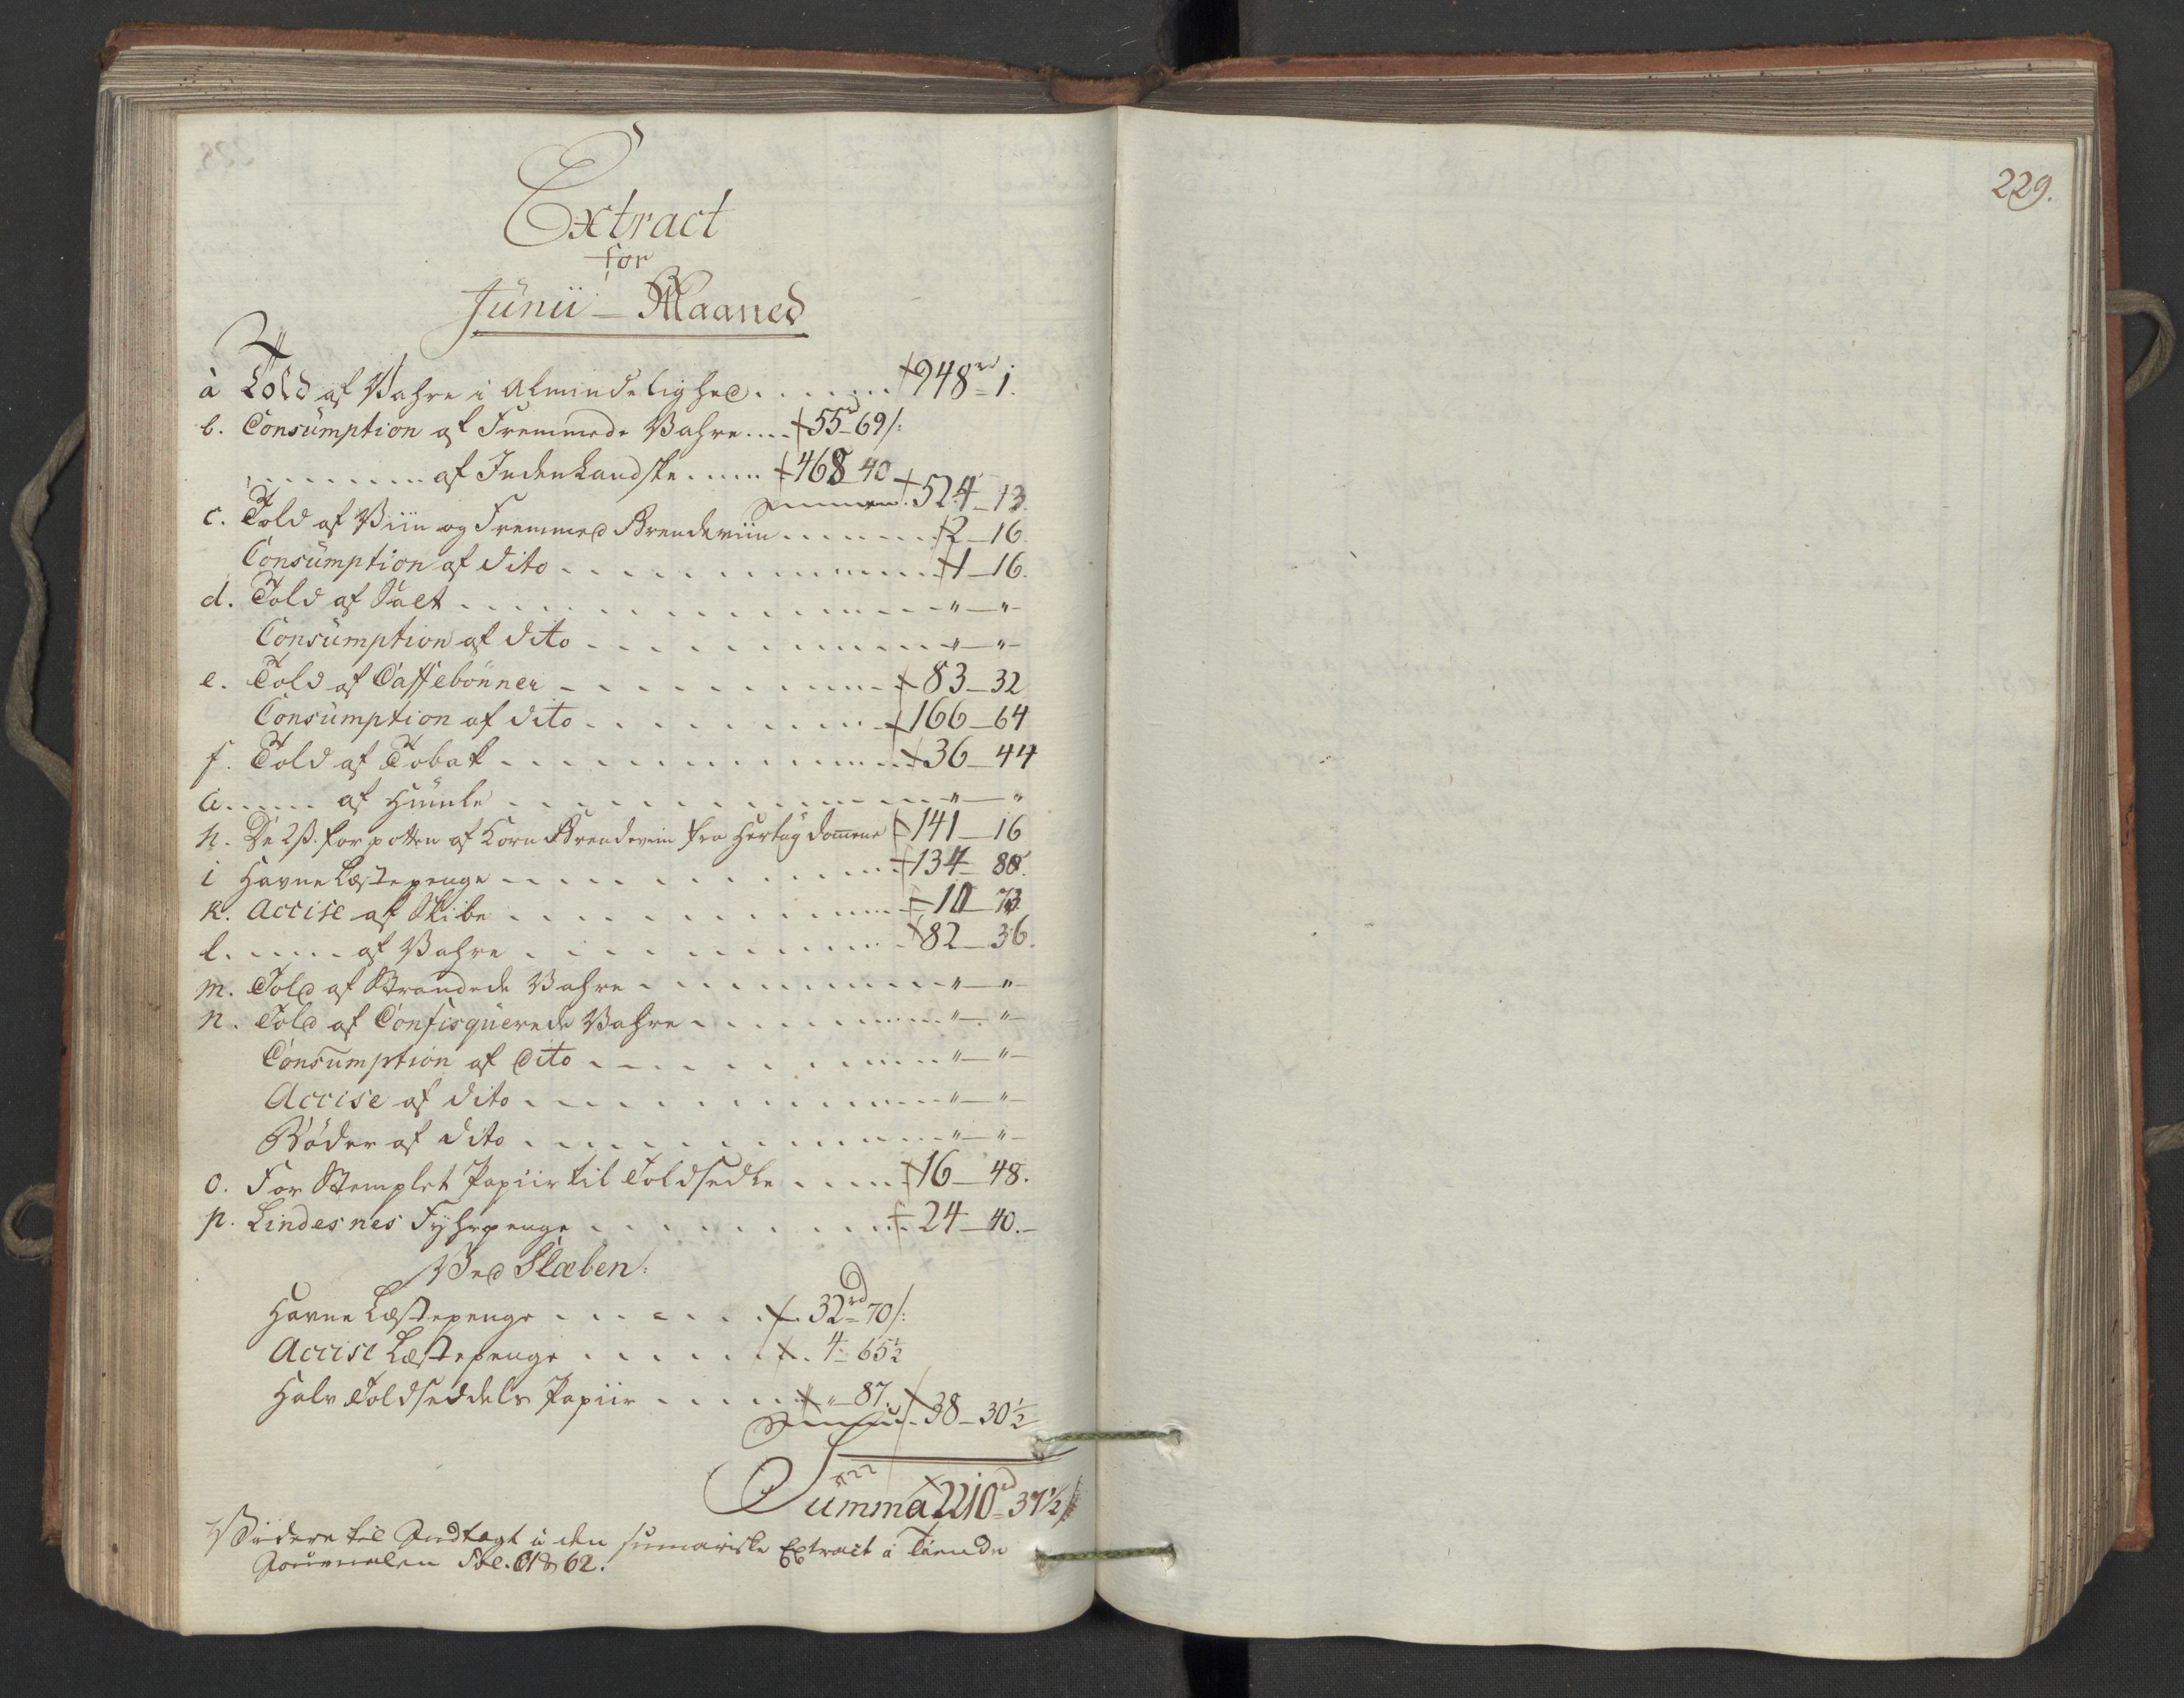 Extract
for
Junii - Maaned
a Told af Vahre i Almindelighed . . . . . . . 948 rd 1.
b. Consumption af Fremmede Vahre .... 55 rd 69 /:
. . . . . . . . . af Indenlandske ..... 468 _ 40
Summa. 524 _ 13.
c. Told af Viin og Fremmed Brendeviin . . . . . . . . 2 _ 16
Consumption af dito . . . . . . . . . . . . . 1 _ 16.
d. Told af Salt . . . . . . . . . . . . . " _ " _
Consumption af dito . . . . . . . . . . . . " _ " _
e. Told af Caffebönner . . . . . . . . . . . 83 _ 32
Consumption af dito . . . . . . . . . . . 166 _ 64
f. Told af Tobak . . . . . . . . . . . . . 36 _ 44
G. . . . . . af Humle . . . . . . . . . . . . " _ "
h. De 2 ß. for potten af Korn Brendeviin fra Hertugdömene 141 _ 16
i Havne Læstepenge . . . . . . . . . . . . 134 _ 88.
k. Accise af Skibe . . . . . . . . . . . . 10 _ 73
l. . . . . . af Vahre . . . . . . . . . . . 82 _ 36.
m. Told af Strandede Vahre . . . . . . . . . . " _ " _
n. Told af Confisquerede Vahre . . . . . . . . . " _ " _
Consumption af dito . . . . . . . . . . . " _ " _
Accise af dito . . . . . . . . . . . . . " _ " _
Böder af dito . . . . . . . . . . . . . " _ " _
o. For Stemplet Papiir til Toldsedle . . . . . 16 _ 48.
p. Lindesnes Fyhrpenge . . . . . . . . . . . 24 _ 40. _
Ved Slæben:
Havne Læstepenge . . . . . . . 32 rd 70 /:
Accise Læstepenge . . . . . . . 4 _ 65 1/2
Halv Toldseddels Papiir . . . . . " _ 87.
Summa. 38 _ 30 1/2
Summa 2210 rd 37 1/2 /
Videre til Indtægt i den sumariske Extract i Tiende
Journalen Fol. 61 & 62.
229.